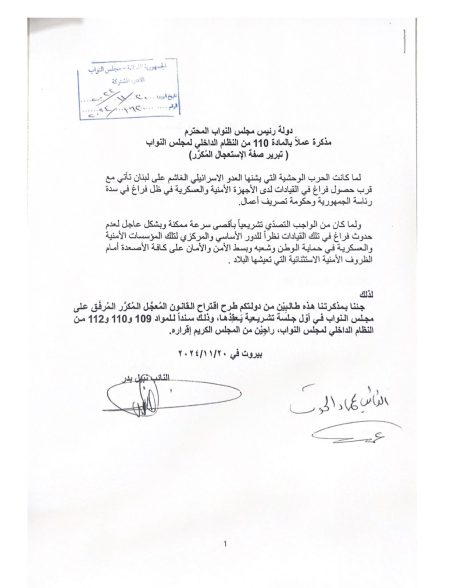 الجمهورية اللبنانية - مجلس النواب
دولة رئيس مجلس النواب المحترم
مذكرة عملاً بالمادة 110 من النظام الداخلي لمجلس النواب
( تبرير صفة الإستعجال المُكرَّر)
لما كانت الحرب الوحشية التي يشنها العدو الاسرائيلي الغاشم على لبنان تأتي مع
قرب حصول فراغ في القيادات لدى الأجهزة الأمنية والعسكرية في ظل فراغ في سدة
رئاسة الجمهورية وحكومة تصريف أعمال.
ولما كان من الواجب التصدّي تشريعياً بأقصى سرعة ممكنة وبشكل عاجل لعدم
حدوث فراغ في تلك القيادات نظراً للدور الأساسي والمركزي لتلك المؤسسات الأمنية
والعسكرية في حماية الوطن وشعبه وبسط الأمن والأمان على كافة الأصعدة أمام
الظروف الأمنية الاستثنائية التي تعيشها البلاد .
لذلك
جئنا بمذكرتنا هذه طالبيْن من دولتكم طرح إقتراح القانون المُعجَّل المُكرَّر المرفق على
مجلس النواب في أوّل جلسة تشريعية يَعقِدُها، وذلك سنداً للمواد 109 و110 و112 من
النظام الداخلي لمجلس النواب، راجيْن من المجلس الكريم إقراره.
بيروت في ٢٠٢٤/١١/٢٠
النائب نبيل بدر
النائب عماد الحوت
1